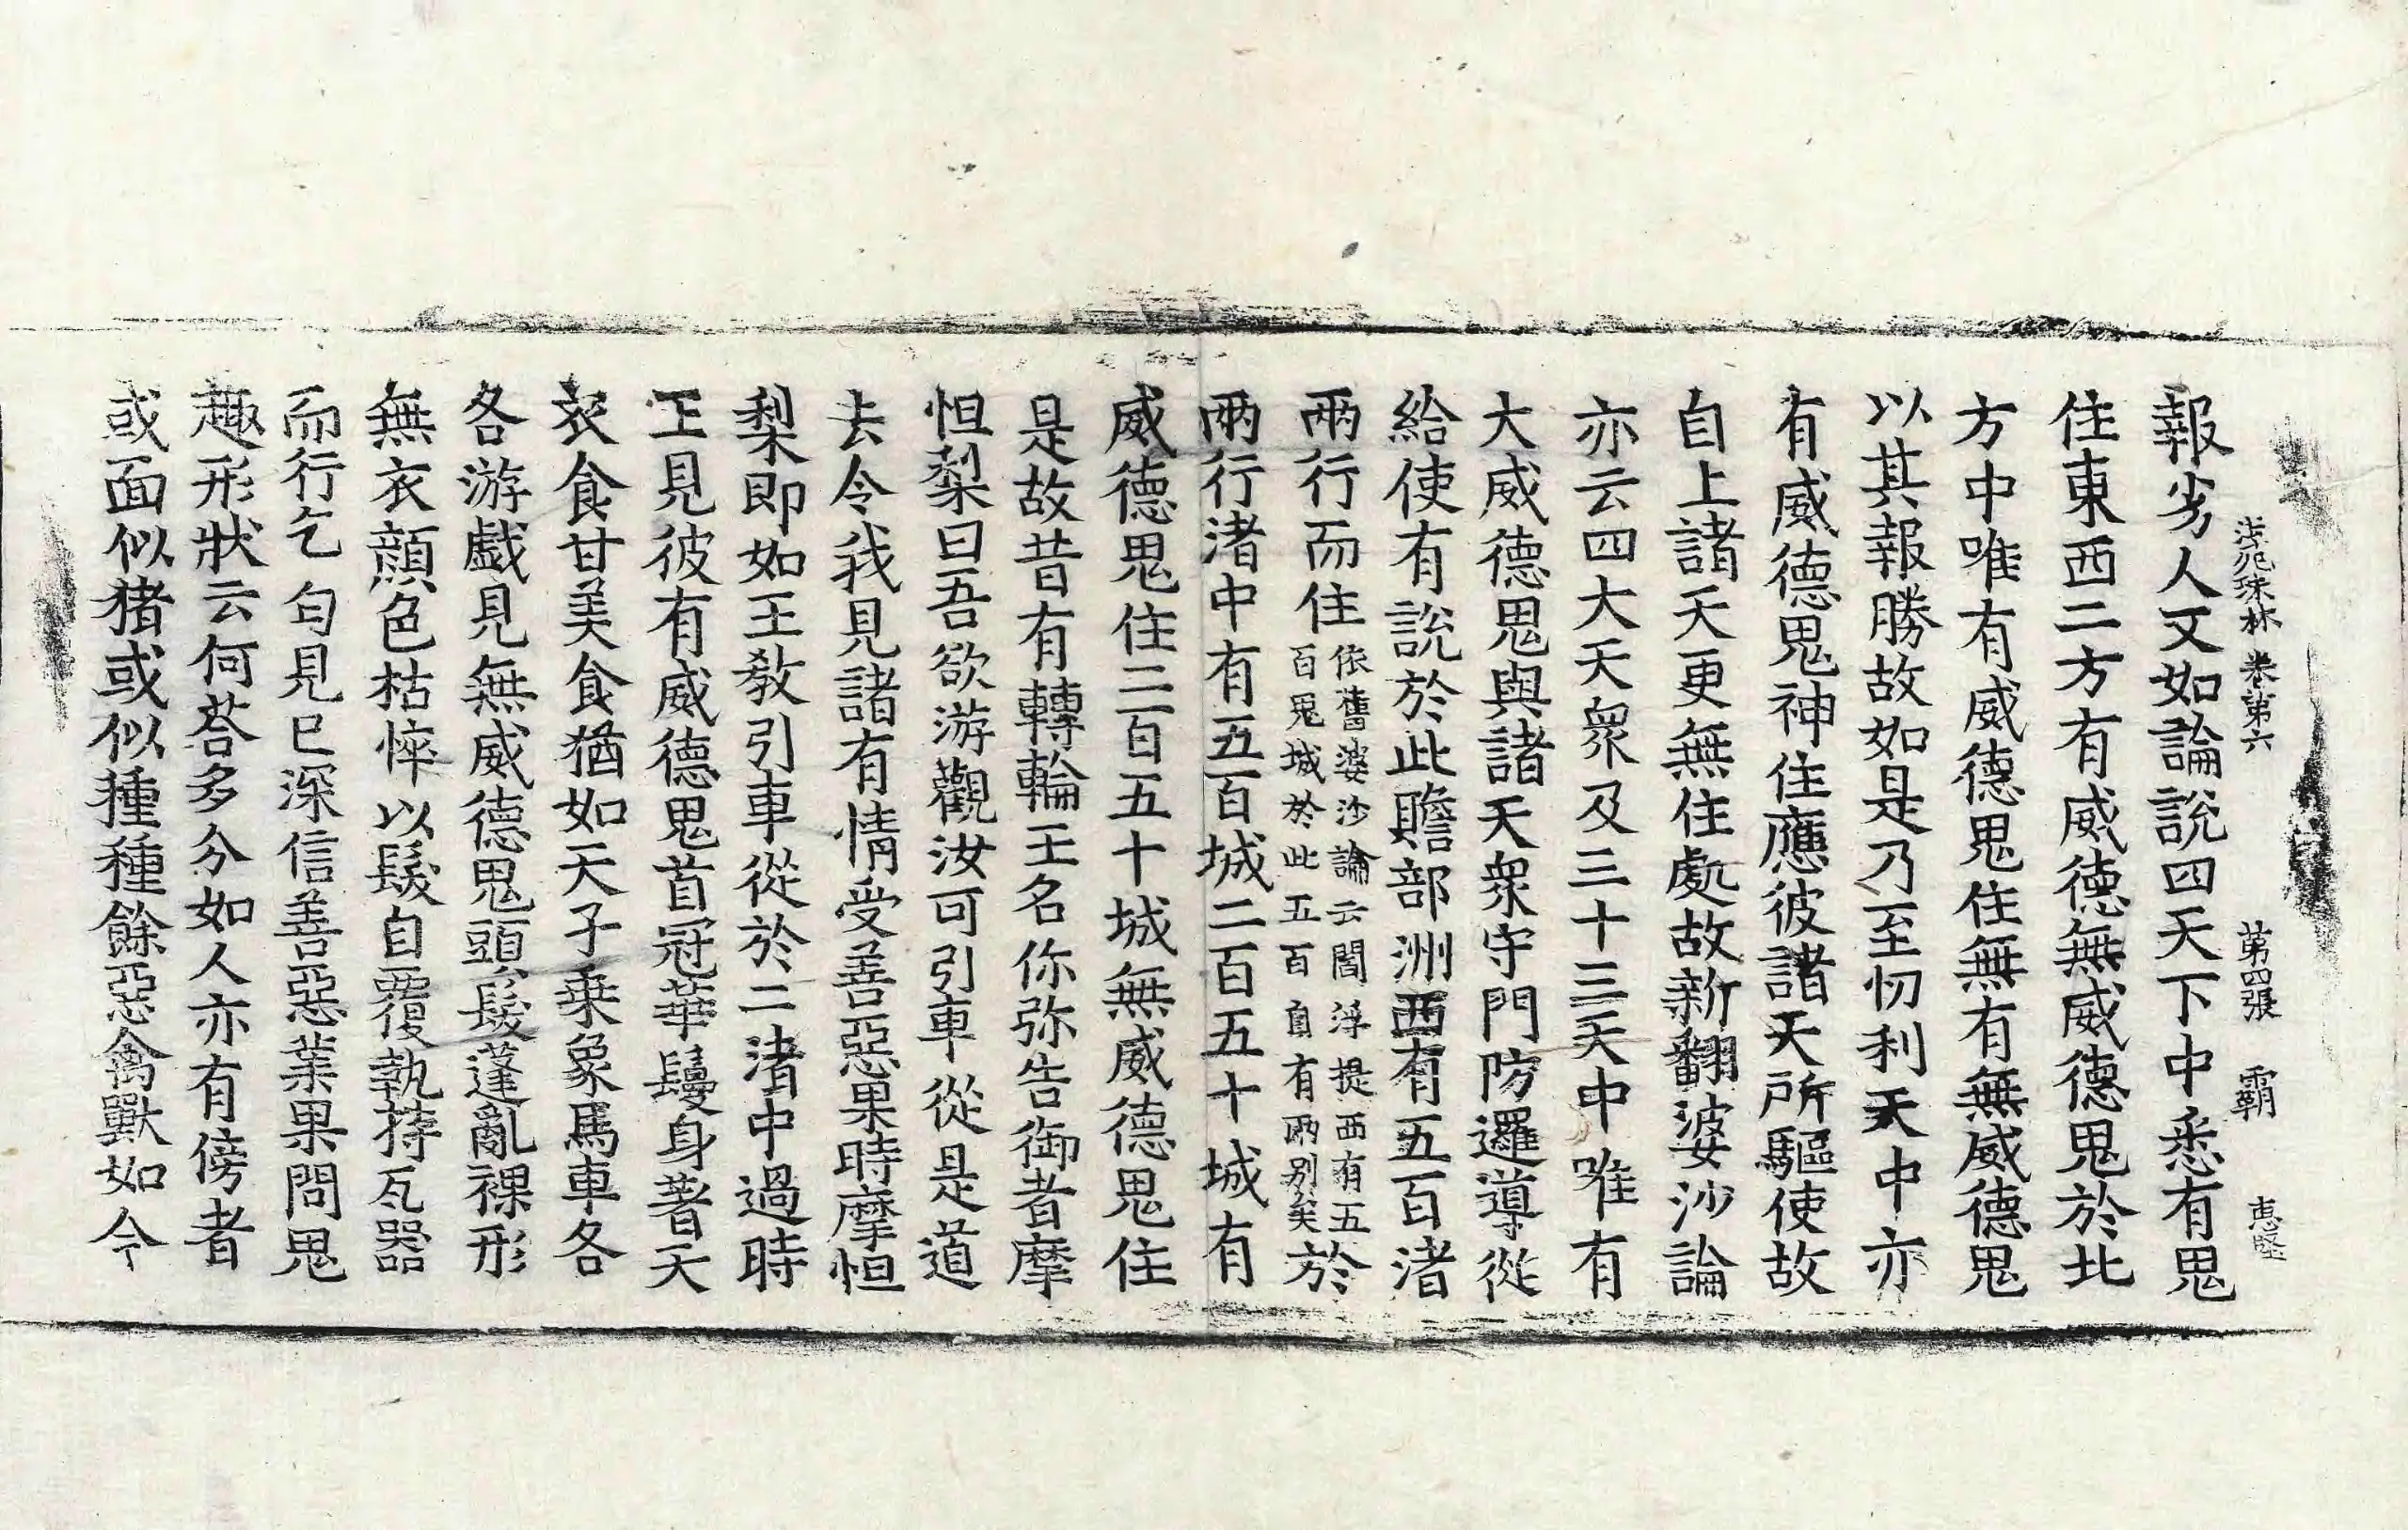 法苑珠林 卷第六 第四張 霸 惠堅
報劣人又如論說四天下中悉有鬼
住東西二方有威德無威德鬼於北
方中唯有威德鬼住無有無威德鬼
以其報勝故如是乃至忉利天中亦
有威德鬼神住應彼諸天所驅使故
自上諸天更無住處故新翻婆沙論
亦云四大天衆及三十三天中唯有
大威德鬼與諸天衆守門防邏導從
給使有說於此贍部洲西有五百渚
兩行而住依舊婆沙論云閻浮提西有五百鬼城於此五百自有兩別矣於
兩行渚中有五百城二百五十城有
威德鬼住二百五十城無威德鬼住
是故昔有轉輪王名你弥告御者摩
怛梨曰吾欲游觀汝可引車從是道
去令我見諸有情受善惡果時摩怛
梨即如王敎引車從於二渚中過時
王見彼有威德鬼首冠華鬘身著天
衣食甘美食猶如天子乗象馬車各
各游戲見無威德鬼頭髮蓬亂裸形
無衣顔色枯悴以髮自覆執持瓦器
而行乞匃見已深信善惡業果問鬼
趣形狀云何荅多分如人亦有傍者
或面似猪或似種種餘惡禽獸如今